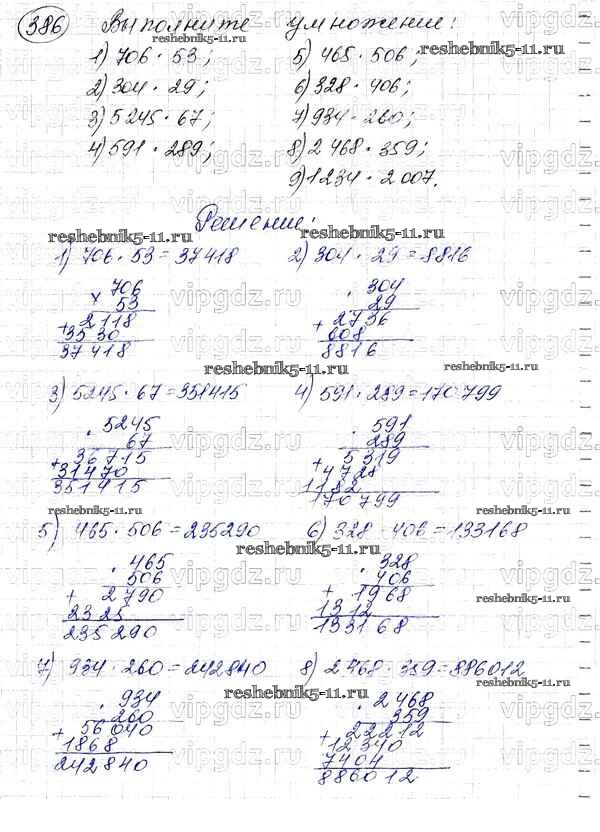 386 Выполните умножение:
1) 706 · 53; 5) 465 · 506;
2) 304 · 29; 6) 328 · 406;
3) 5245 · 67; 7) 934 · 260;
4) 591 · 289; 8) 2468 · 359;
9) 1234 · 2007.
Решение:
1) 706 · 53 = 37418 2) 304 · 29 = 8816
706 304
× 53 · 29
2118 2736
+ 3530 + 608
37418 8816
3) 5245 · 67 = 351415 4) 591 · 289 = 170799
5245 591
· 67 · 289
36715 5319
+ 31470 + 4728
351415 1182
170799
5) 465 · 506 = 235290 6) 328 · 406 = 133168
· 465 · 328
506 406
+ 2790 + 1968
2325 1312
235290 133168
7) 934 · 260 = 242840 8) 2468 · 359 = 886012
· 934 · 2468
260 359
+ 56040 + 22212
1868 12340
242840 7404
886012
reshebnik5-11.ru
vipgdz.ru